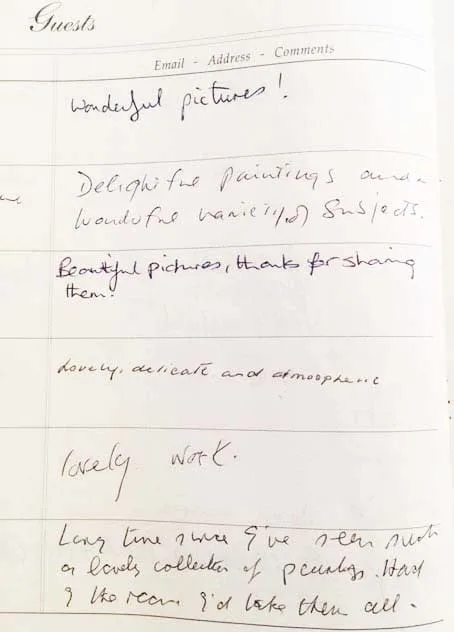 Guests
Email - Address - Comments
Wonderful pictures!
Delightful paintings and a
wonderful variety of subjects.
Beautiful pictures, thanks for sharing
them.
Lovely, delicate and atmospheric
lovely work.
Long time since I've seen such
a lovely collection of paintings. Had
I the room I'd take them all.